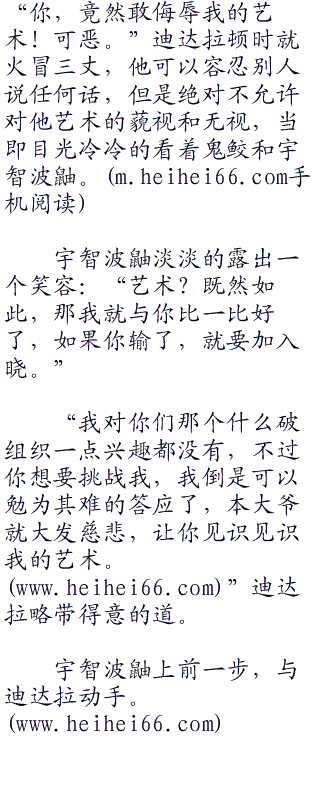 “你，竟然敢侮辱我的艺
术！可恶。”迪达拉顿时就
火冒三丈，他可以容忍别人
说任何话，但是绝对不允许
对他艺术的藐视和无视，当
即目光冷冷的看着鬼鲛和宇
智波鼬。(m.heihei66.com手
机阅读)
宇智波鼬淡淡的露出一
个笑容：“艺术？既然如
此，那我就与你比一比好
了，如果你输了，就要加入
晓。”
“我对你们那个什么破
组织一点兴趣都没有，不过
你想要挑战我，我倒是可以
勉为其难的答应了，本大爷
就大发慈悲，让你见识见识
我的艺术。
(www.heihei66.com)”迪达
拉略带得意的道。
宇智波鼬上前一步，与
迪达拉动手。
(www.heihei66.com)